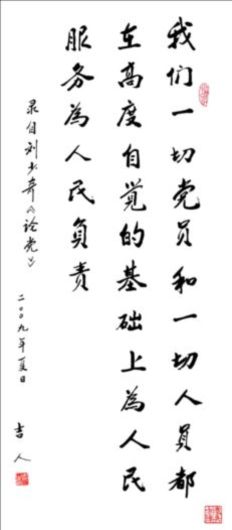 我们一切党员和一切人员都
在高度自觉的基础上为人民
服务為人民負责
录自刘少奇《论党》
二〇〇九年夏日
吉人